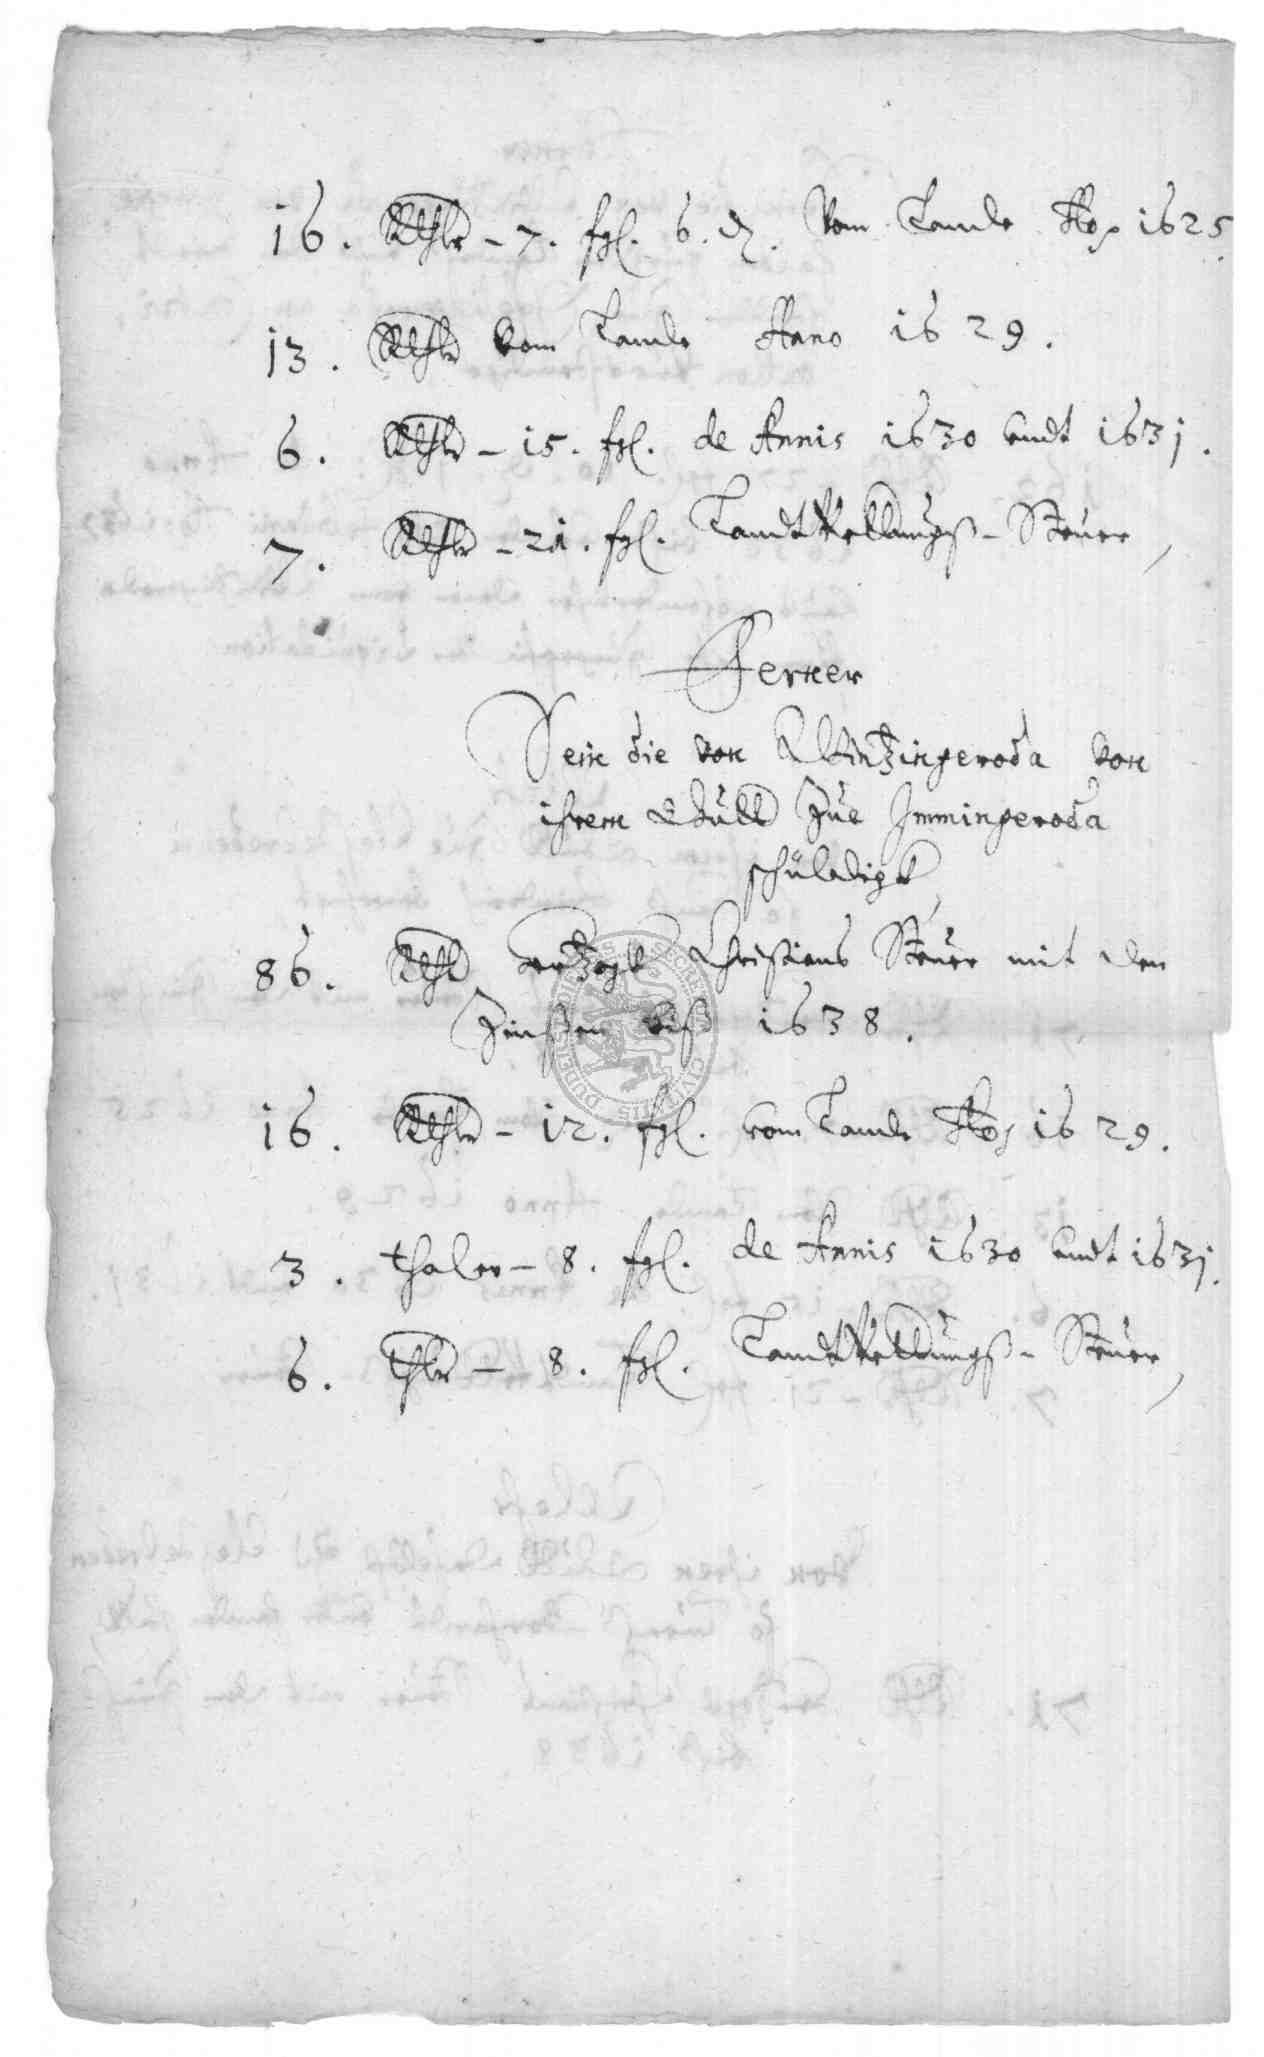 16. Rthlr - 7. fgl. 6. d. Vom Lande Ao 1625
13. Rthlr vom Lande Anno 1629.
6. Rthlr - 15. fgl. de Annis 1630 undt 1631.
7. Rthlr - 21. fgl. Landtrettungß-Steuer,
Ferner
Sein die von Wintzingeroda von
ihrem Gutt Zue Immingeroda
schüldigk,
86. Rthl Hertzogk Christians Steuer mit den
Zinßen biß 1638.
16. Rthlr - 12. fgl. vom Lande Ao 1629.
3. thaler - 8. fgl. de Annis 1630 undt 1631.
6. thlr - 8. fgl. Landtrettungß-Steuer,
SECRET CIVITATIS DUDER